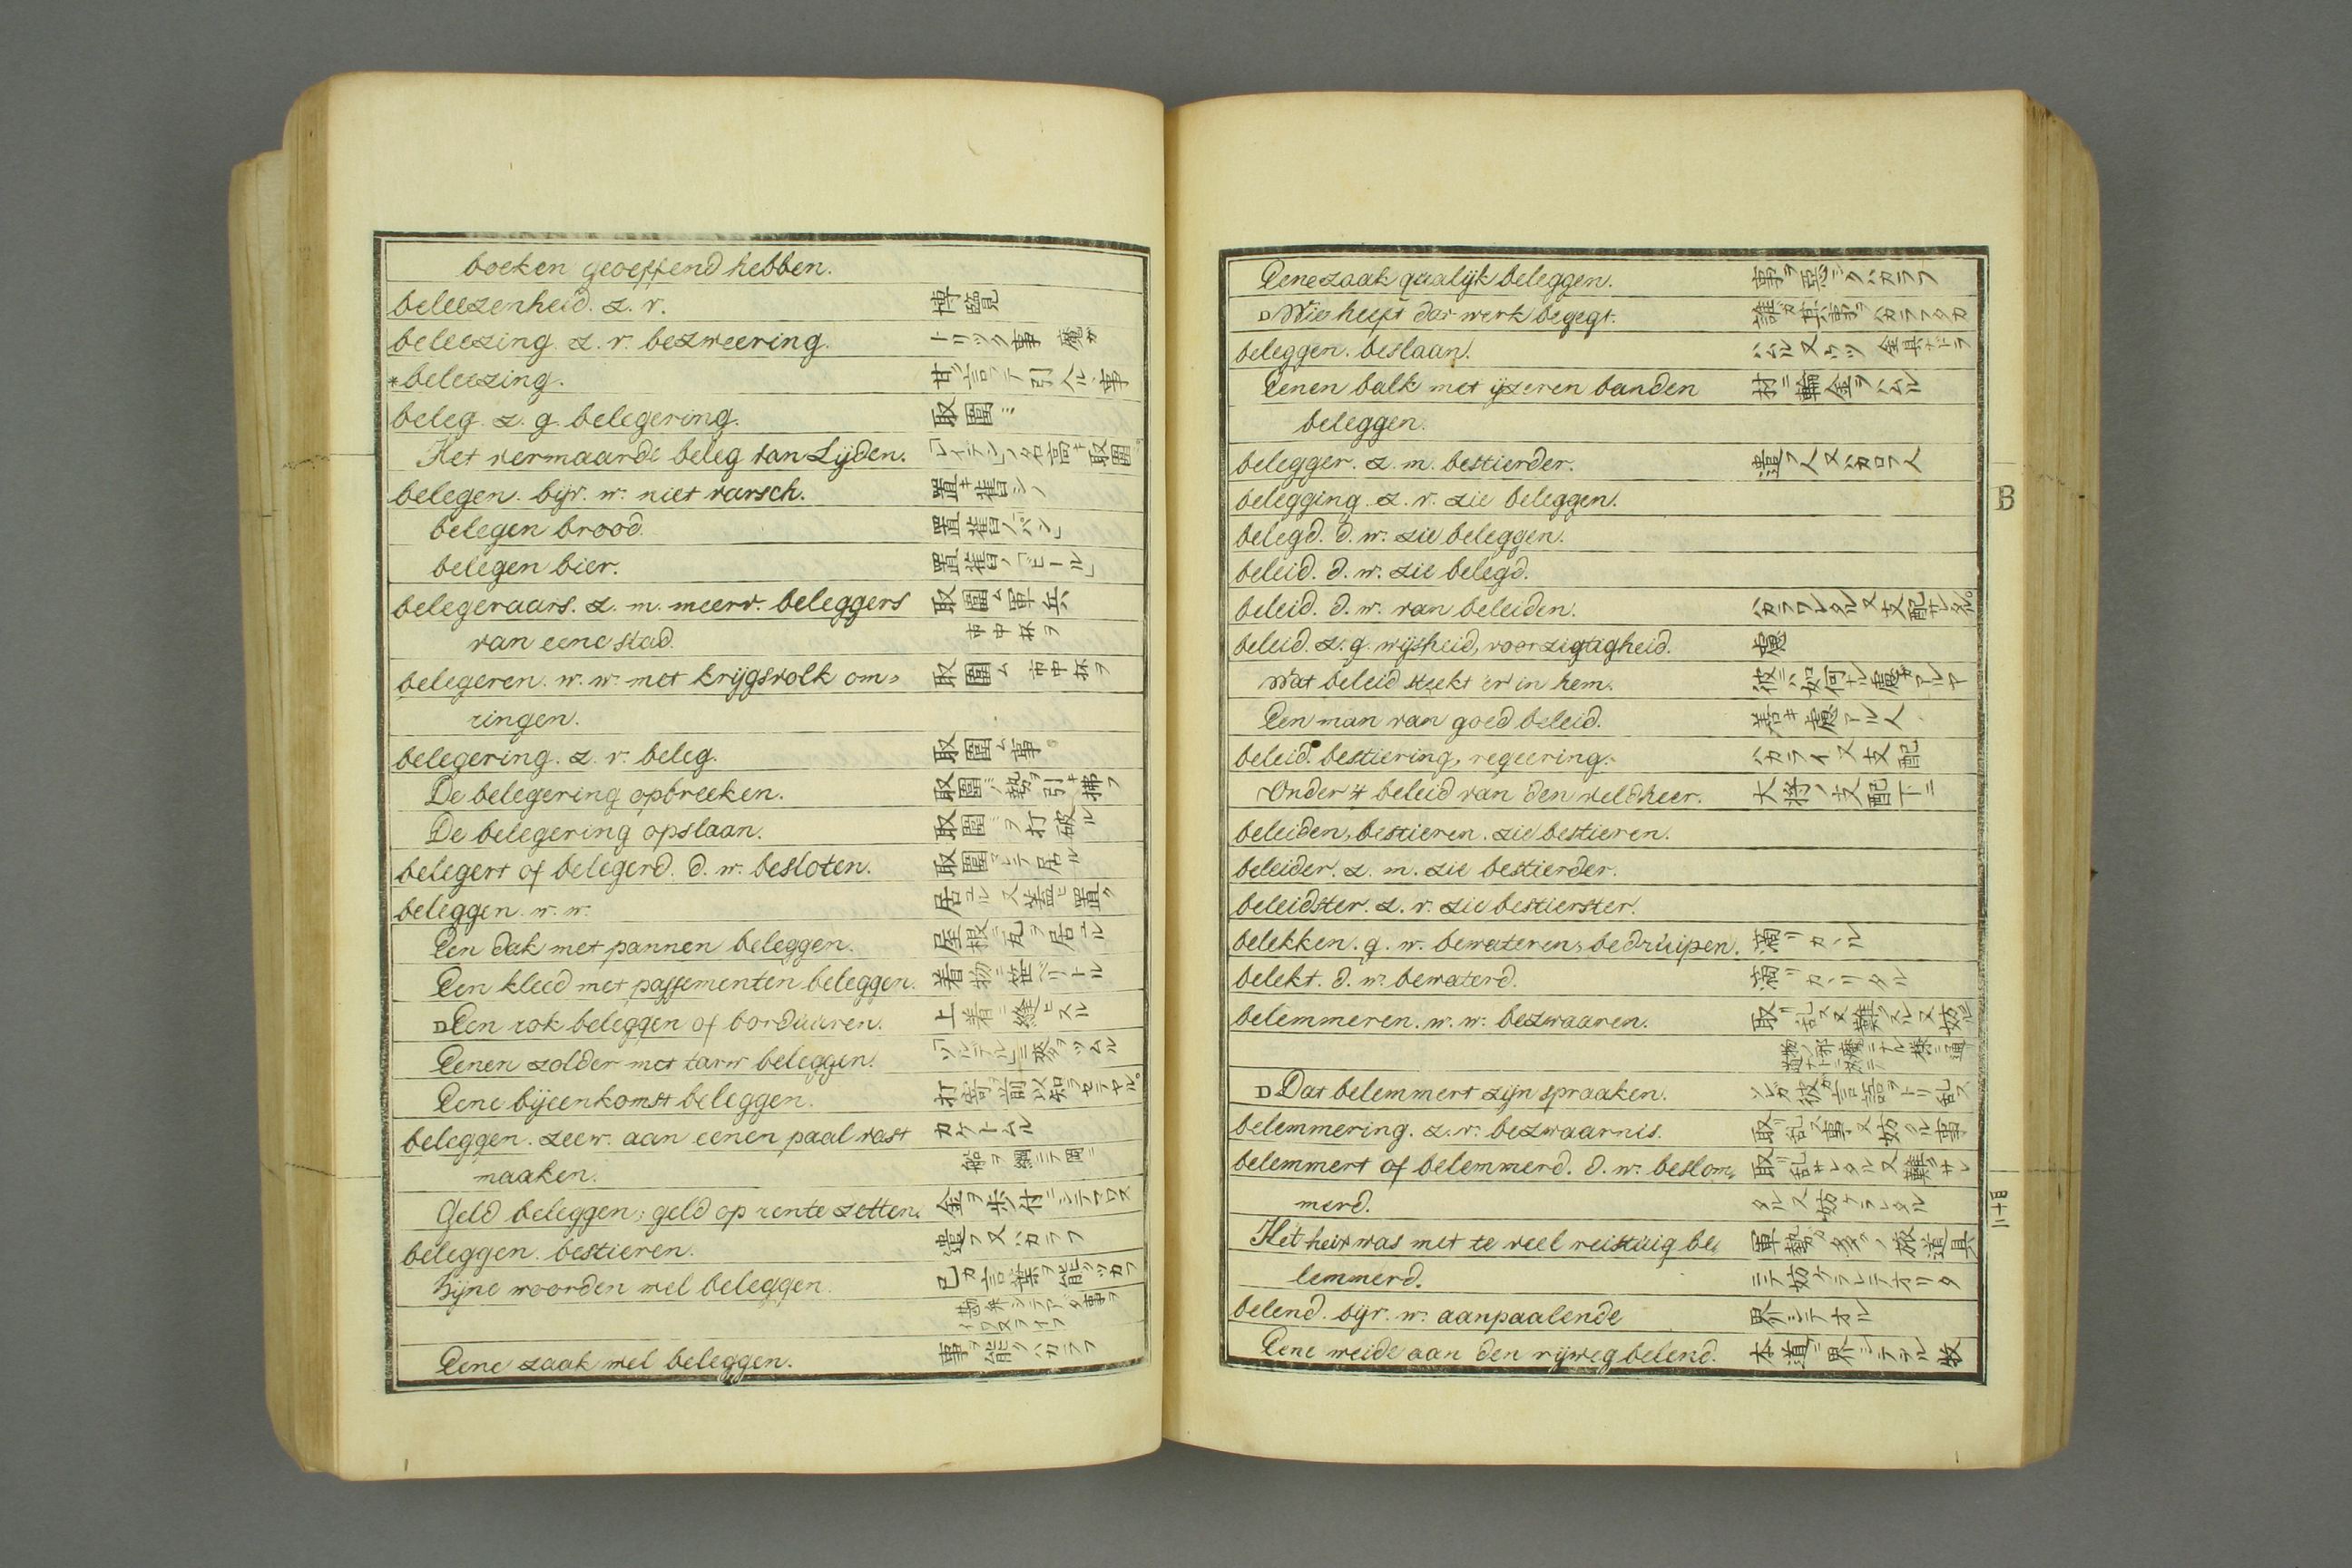 boeken geoeffend hebben.
beleezenheid. z. v. 博覧
beleezing. z. v. bezweering. トリツク事 魔ガ
*beleezing. 甘ク言ヲテ引入ル事
beleg. z. g. belegering. 取圍ミ
Het vermaarde beleg van Lijden. 「レイデン」ノ名高キ取圍
belegen. bijv. w. niet varsch. 置キ舊シノ
belegen brood. 置舊ノ「パン」
belegen bier. 置舊ノ「ビール」
belegeraars. z. m. meerv. beleggers 取圍ム軍兵
van eene stad. 市中抔ヲ
belegeren. w. w. met krijgsvolk om= 取圍ム 市中抔ヲ
ringen.
belegering. z. v. beleg. 取圍ム事
De belegering opbreeken. 取圍ノ勢ヲ引キ拂フ
De belegering opslaan. 取圍ミヲ打破ル
belegert of belegerd. d. w. besloten. 取圍マレテ居ル
beleggen. w. w. 居ユル又蓋ヒ置ク
Een dak met pannen beleggen. 屋根ニ瓦ヲ居ユル
Een kleed met passementen beleggen. 着物ニ笹ベリトル
DEen rok beleggen of borduuren. 上着ニ縫ヒスル
Eenen zolder met tarw beleggen. 「ソルデル」ニ麥ヲツムル
Eene bijeenkomst beleggen. 打寄ヲ前以知ラセヤル
beleggen. zeew. aan eenen paal vast カケトムル
maaken. 船ヲ綱ニテ岡ニ
Geld beleggen; geld op rente zetten. 金ヲ歩付ニシテマワス
beleggen. bestieren. 遣フ又ハカラフ
Zijne woorden wel beleggen. 己カ言葉ヲ能クツカフ
Eene zaak wel beleggen. 事ヲ能クハカラフ
Eene zaak qualijk beleggen. 事ヲ惡シクハカラフ
DWie heeft dat werk begegt. 誰ガ其事ヲハカラフタカ
beleggen. beslaan. ハムル又ウツ 金具ナドヲ
Eenen balk met ijzeren banden 材ニ輪金ヲハムル
beleggen.
belegger. z. m. bestierder. 遣フ人又ハカロフ人
belegging. z. v. zie beleggen.
belegd. d. w. zie beleggen.
beleid. d. w. zie belegd.
beleid. d. w. van beleiden. ハカラワレタル又支配サレタル
beleid. z. g. wijsheid, voorzigtigheid. 慮
Wat beleid steekt er in hem. 彼ニハ如何ナル慮ガアルヤ
Een man van goed beleid. 善キ慮アル人
beleid. bestiering, regeering. ハカライ又支配
Onder 't beleid van den veldheer. 大將ノ支配下ニ
beleiden, bestieren. zie bestieren.
beleider. z. m. zie bestierder.
beleidster. z. v. zie bestierster.
belekken. g. w. bewateren, bedruipen. 滴リカヽル
belekt. d. w. bewaterd. 滴リカヽリタル
belemmeren. w. w. bezwaaren. 取リ乱ス又難クスル又妨ル
DDat belemmert zijn spraaken. ソレガ彼ガ言語ヲトリ乱ス
belemmering. z. v. bezwaarnis. 取リ乱ス事又妨クル事
belemmert of belemmerd. d. w. beslom= 取リ乱サレタル又難クサレ
merd. タル又妨ケラレタル
Het heir was met te veel reistuig be= 軍勢ガ多クノ旅道具
lemmerd. ニテ妨ケラレテオリタ
belend. bijv. w. aanpaalende 界シテオル
Eene weide aan den rijweg belend. 本道ニ界シテヲル牧
B